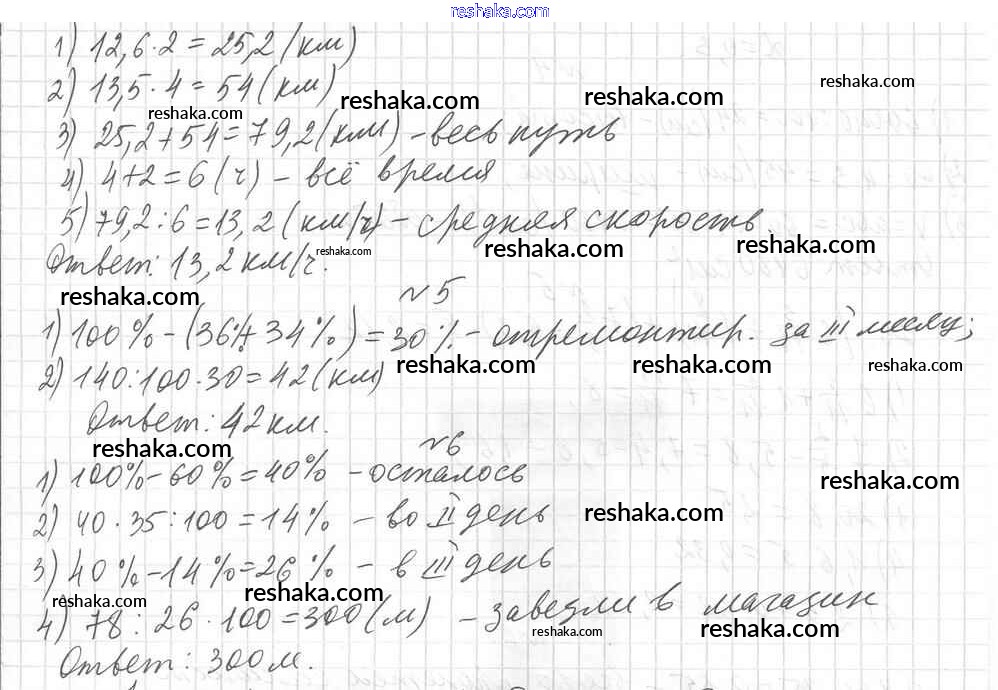 reshaka.com
1) 12,6·2=25,2 (км)
2) 13,5·4=54 (км)
reshaka.com
reshaka.com
reshaka.com
reshaka.com
3) 25,2+54=79,2 (км) - весь путь
4) 4+2=6 (ч) - всё время
5) 79,2:6=13,2 (км/ч) - средняя скорость
reshaka.com
reshaka.com
Ответ: 13,2 км/ч.
reshaka.com
reshaka.com
№5
1) 100%-(36%+34%)=30% - отремонтир. за III месяц;
2) 140:100·30=42 (км)
reshaka.com
reshaka.com
reshaka.com
Ответ: 42 км.
reshaka.com
№6
1) 100%-60%=40% - осталось
reshaka.com
2) 40·35:100=14% - во II день
reshaka.com
3) 40%-14%=26% - в III день
reshaka.com
reshaka.com
4) 78:26·100=300 (м) - завезли в магазин
reshaka.com
reshaka.com
Ответ: 300 м.